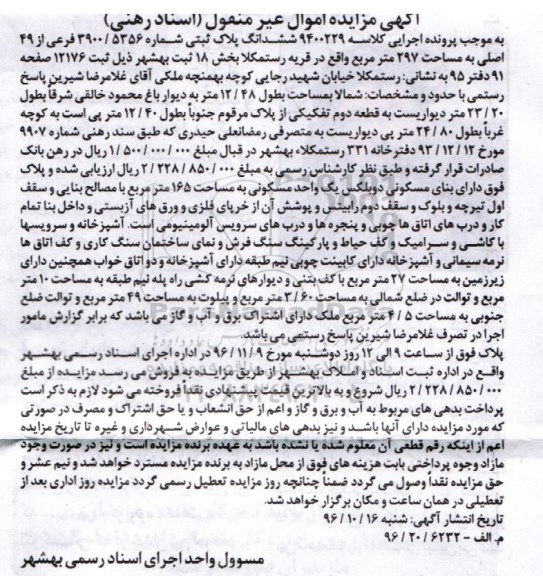 آگهی مزایده اموال غیر منقول (اسناد رهنی)
به موجب پرونده اجرایی کلاسه ۹۴۰۰۲۲۹ ششدانگ پلاک ثبتی شماره ۵۳۵۶ / ۳۹۰۰ فرعی از ۴۹
اصلی به مساحت ۲۹۷ متر مربع واقع در قریه رستمکلا بخش ۱۸ ثبت بهشهر ذیل ثبت ۱۲۱۷۶ صفحه
۹۱ دفتر ۹۵ به نشانی: رستمکلا خیابان شهید رجایی کوچه بهمنچه ملکی آقای غلامرضا شیرین پاسخ
رستمی با حدود و مشخصات: شمالا بمساحت بطول ۴۸ / ۱۲ متر به دیوار باغ محمود خالقی شرقا بطول
۲۰ / ۲۳ متر دیواریست به قطعه دوم تفکیکی از پلاک مرقوم جنوباً بطول ۴۰ / ۱۲ متر پی است به کوچه
غرباً بطول ۸۰ / ۲۴ متر پی دیواریست به متصرفی رمضانعلی حیدری که طبق سند رهنی شماره ۹۹۰۷
مورخ ۱۲ / ۱۲ / ۹۳ دفترخانه ۳۳۱ رستمکلاء بهشهر در قبال مبلغ ۰۰۰ / ۰۰۰ / ۵۰۰ / ۱ ریال در رهن بانک
صادرات قرار گرفته و طبق نظر کارشناس رسمی به مبلغ ۰۰۰ / ۸۵۰ / ۲۲۸ / ۲ ریال ارزیابی شده و پلاک
فوق دارای بنای مسکونی دوبلکس یک واحد مسکونی به مساحت ۱۶۵ متر مربع با مصالح بنایی و سقف
اول تیرچه و بلوک و سقف دوم رابیتس و پوشش آن از خرپای فلزی و ورق های آزبستی و داخل بنا تمام
کار و درب های اتاق ها چوبی و پنجره ها و درب های سرویس آلومینیومی است. آشپزخانه و سرویسها
با کاشی و سرامیک و کف حیاط و پارکینگ سنگ فرش و نمای ساختمان سنگ کاری و کف اتاق ها
نرمه سیمانی و آشپزخانه دارای کابینت چوبی نیم طبقه دارای آشپزخانه و دو اتاق خواب همچنین دارای
زیرزمین به مساحت ۲۷ متر مربع با کف بتنی و دیوارهای نرمه کشی راه پله نیم طبقه به مساحت ۱۰ متر
مربع و توالت در ضلع شمالی به مساحت ۶۰ / ۳ متر مربع و پیلوت به مساحت ۴۹ متر مربع و توالت ضلع
جنوبی به مساحت ۵ / ۴ متر مربع ملک دارای اشتراک برق و آب و گاز می باشد که برابر گزارش مامور
اجرا در تصرف غلامرضا شیرین پاسخ رستمی می باشد.
پلاک فوق از ساعت ۹ الی ۱۲ روز دوشنبه مورخ ۹ / ۱۱ / ۹۶ در اداره اجرای اسناد رسمی بهشهر
واقع در اداره ثبت اسناد و املاک بهشهر از طریق مزایده به فروش می رسد مزایده از مبلغ
۰۰۰ / ۸۵۰ / ۲۲۸ / ۲ ریال شروع و به بالاترین قیمت پیشنهادی نقداً فروخته می شود لازم به ذکر است
پرداخت بدهی های مربوط به آب و برق و گاز و اعم از حق انشعاب و یا حق اشتراک و مصرف در صورتی
که مورد مزایده دارای آنها باشد و نیز بدهی های مالیاتی و عوارض شهرداری و غیره تا تاریخ مزایده
اعم از اینکه رقم قطعی آن معلوم شده یا نشده باشد به عهده برنده مزایده است و نیز در صورت وجود
مازاد وجوه پرداختی بابت هزینه های فوق از محل مازاد به برنده مزایده مسترد خواهد شد و نیم عشر و
حق مزایده نقداً وصول می گردد ضمناً چنانچه روز مزایده تعطیل رسمی گردد مزایده روز اداری بعد از
تعطیلی در همان ساعت و مکان برگزار خواهد شد.
تاریخ انتشار آگهی: شنبه ۱۶ / ۱۰ / ۹۶
م. الف - ۶۲۳۲ / ۲۰ / ۹۶
مسوول واحد اجرای اسناد رسمی بهشهر